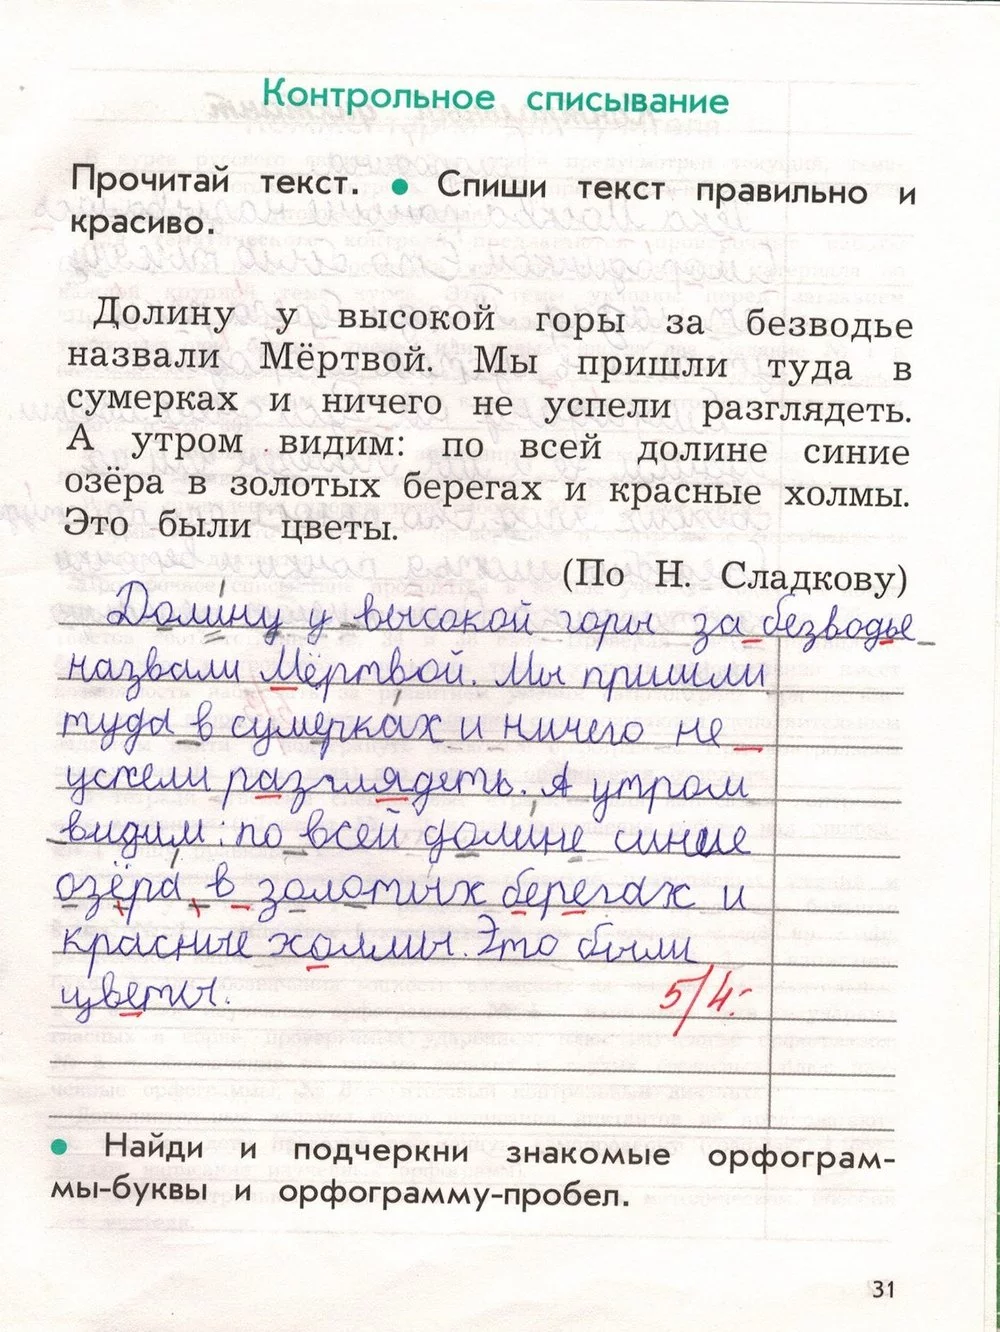 Контрольное списывание
Прочитай текст. ● Спиши текст правильно и
красиво.
Долину у высокой горы за безводье
назвали Мёртвой. Мы пришли туда в
сумерках и ничего не успели разглядеть.
А утром видим: по всей долине синие
озёра в золотых берегах и красные холмы.
Это были цветы.
(По Н. Сладкову)
Долину у высокой горы за безводье
назвали Мёртвой. Мы пришли
туда в сумерках и ничего не
успели разглядеть. А утром
видим: по всей долине синие
озёра в золотых берегах и
красные холмы. Это были
цветы.
5/4.
● Найди и подчеркни знакомые орфограм-
мы-буквы и орфограмму-пробел.
31